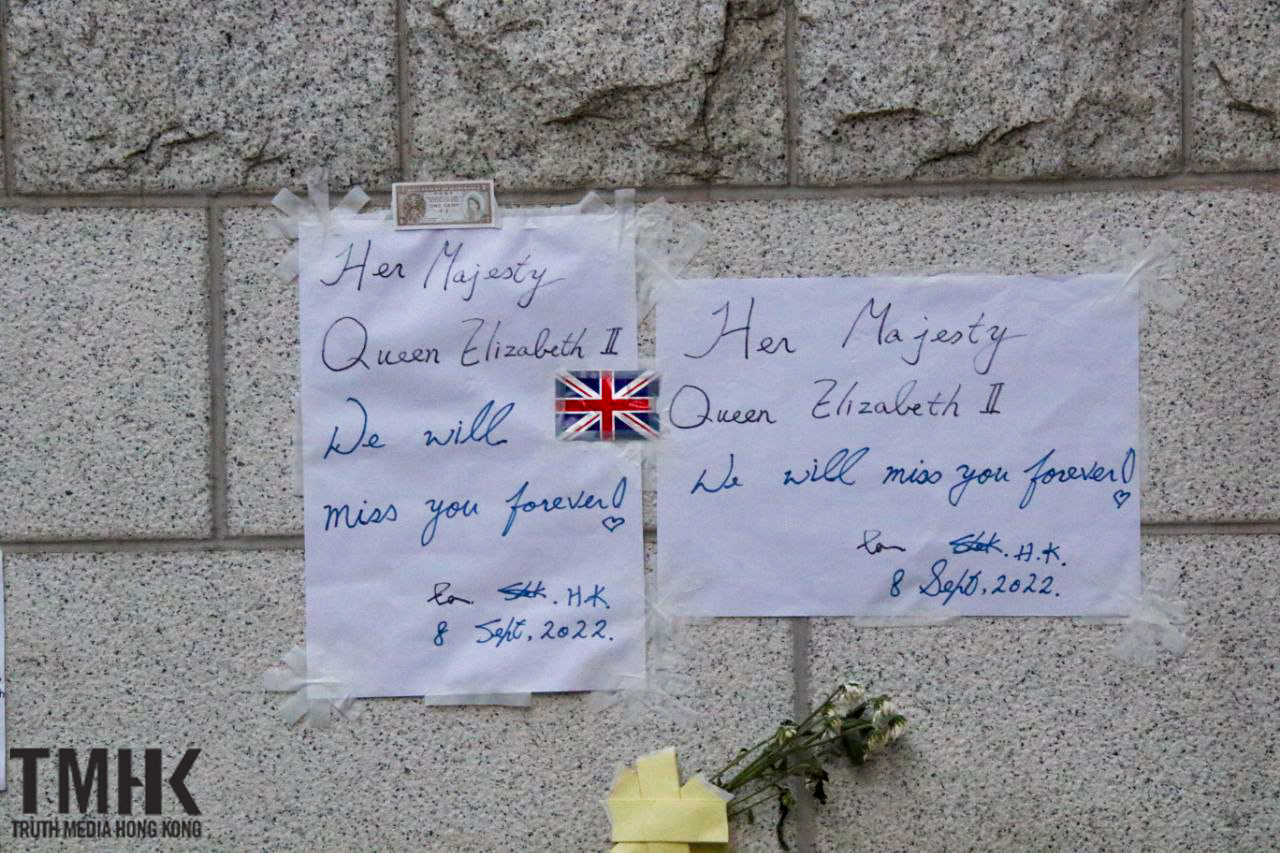 Her Majesty
Queen Elizabeth II
We will
miss you forever!
Ian H.K
8 Sept, 2022.
Her Majesty
Queen Elizabeth II
We will miss you forever!
Ian H.K.
8 Sept, 2022.
TMHK
TRUTH MEDIA HONG KONG